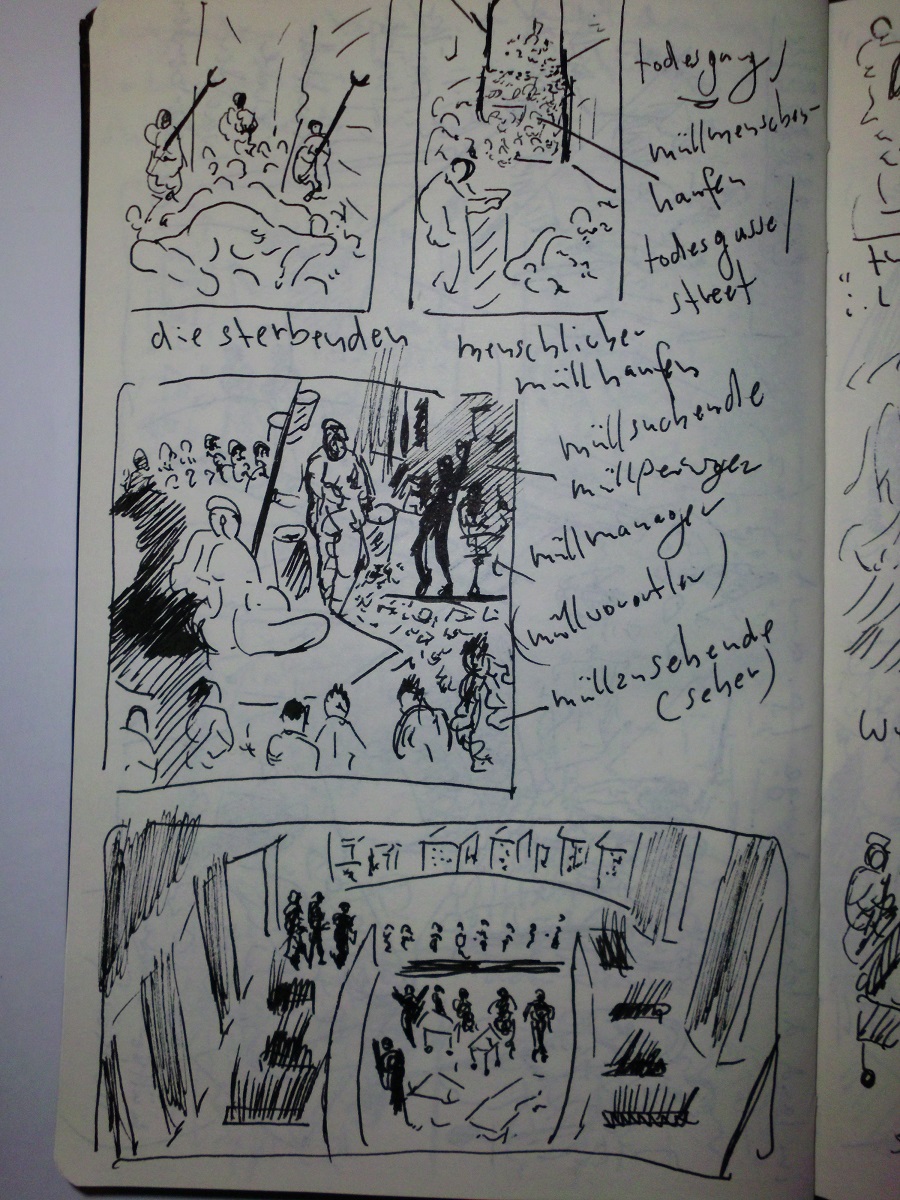 todesgang/
müllmenschen-
haufen
todesgasse/
street
die sterbenden
menschlicher
müllhaufen
müllsuchende
müllmanager
müllzusehende
(seher)